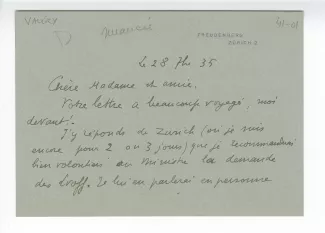 VALÉRY
41-01
Le 28 7bre 35
Chère Madame et amie.
Votre lettre a beaucoup voyagé, moi
devant!
J'y réponds de Zurich (où je suis
encore pour 2 ou 3 jours) que je recommanderai
bien volontiers au Ministre la demande
des Lvoff. Je lui en parlerai en personne